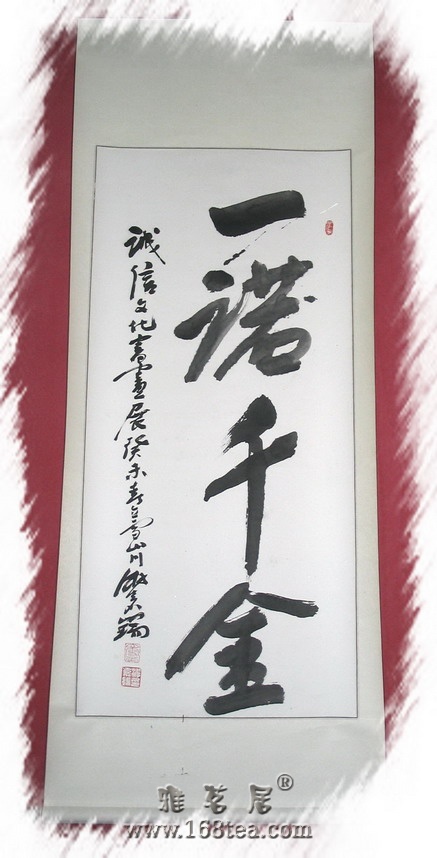 一诺千金
诚信文化書畫展癸未春
雅茗居®
www.168tea.com